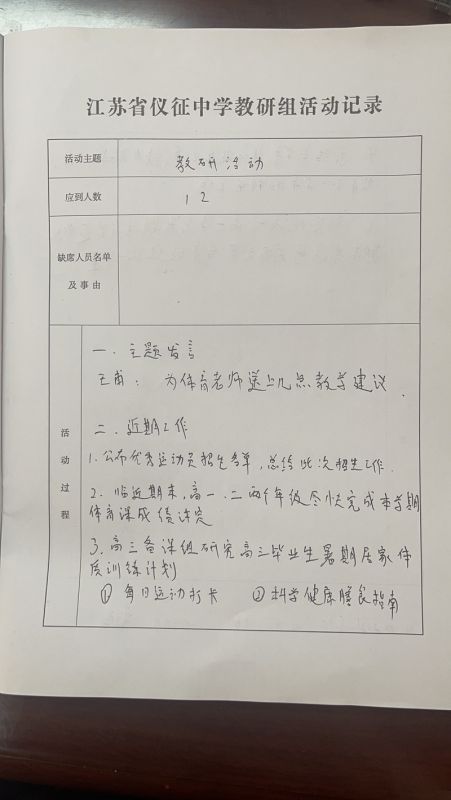 江苏省仪征中学教研组活动记录
活动主题 教研活动
应到人数 12
缺席人员名单
及事由
活动过程
一、主题发言
王甫：为体育老师送上几点教学建议.
二、近期工作
1.公布优秀运动员招生名单，总结此次招生工作.
2.临近期末，高一、二两个年级尽快完成本学期
体育课成绩评定
3.高三备课组研究高三毕业生暑期居家体
质训练计划
①每日运动打卡 ②科学健康膳食指南